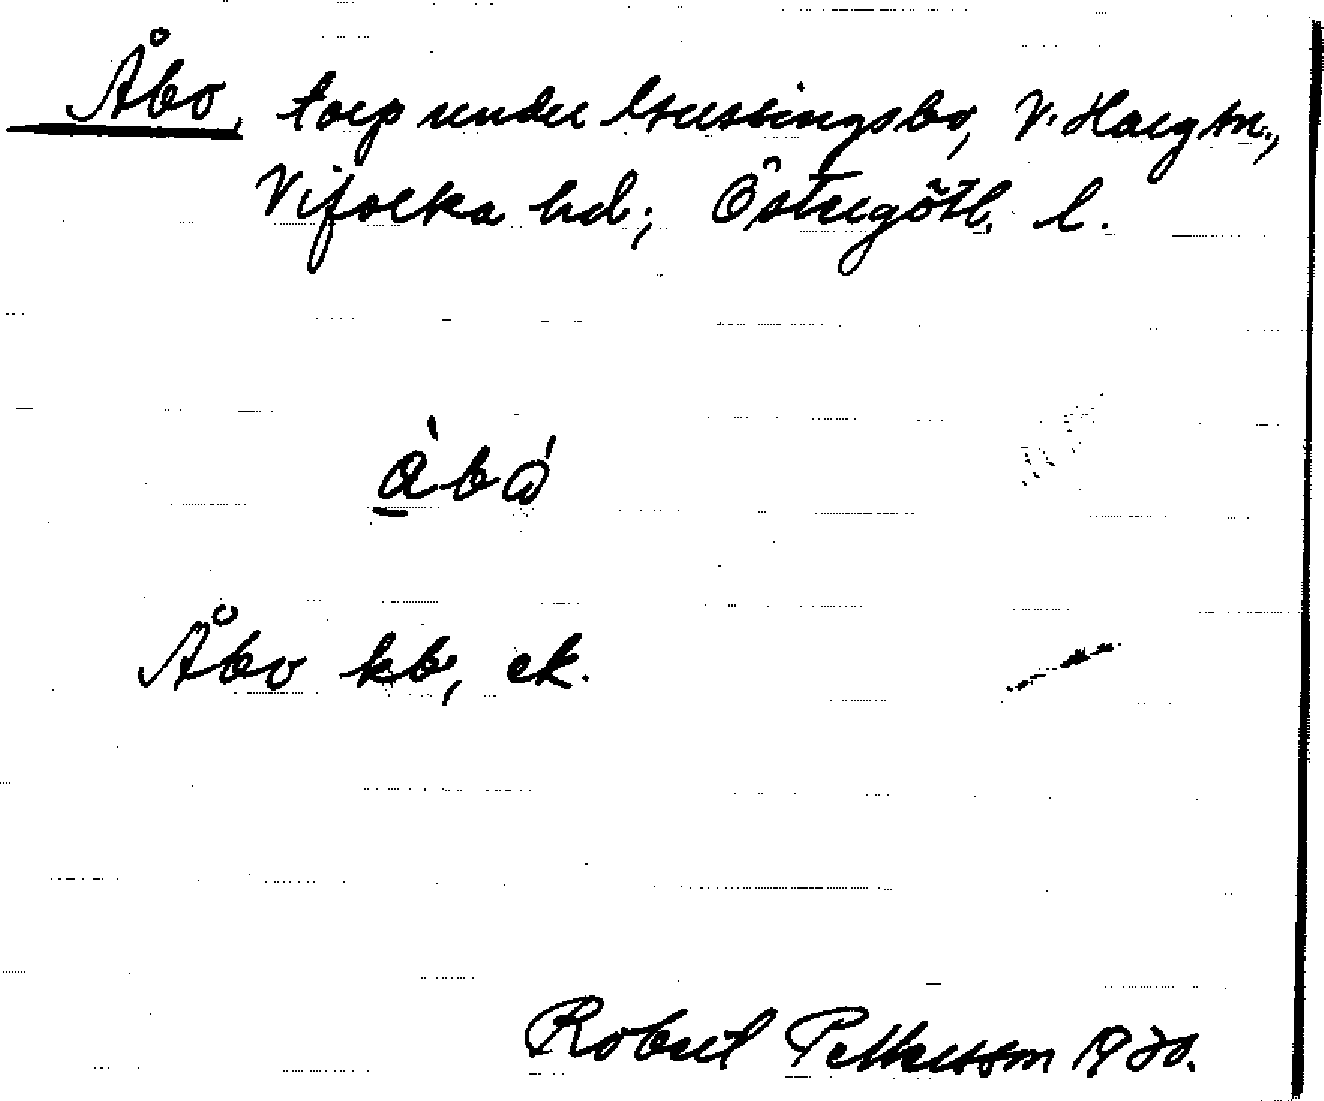 Åbo, torp under Gussingsbo, V. Harg sn.,
Vifolka hd; Östergötl. l.
Åbo kb, ek.
Robert Pettersson